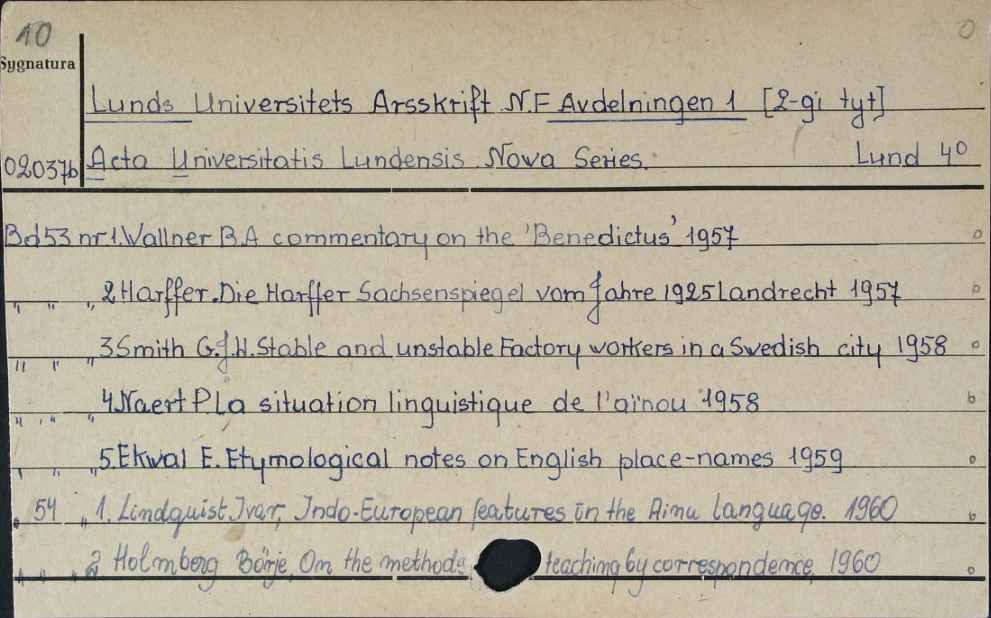 10 0
Sygnatura
Lunds Universitets Arsskrift N.F Avdelningen 1 [2-gi tyt]
02037b Acta Universitatis Lundensis Nova Series. Lund 4o
Bd 53 nr 1. Wallner B. A commentary on the 'Benedictus' 1957 o
" " " 2 Harffer. Die Harffer Sachsenspiegel vom Jahre 1925 Landrecht 1957 b
" " " 3 Smith G.J.H. Stable and unstable Factory workers in a Swedish city 1958 o
" " " 4 Naert P La situation linguistique de l'aïnou 1958 b
" " " 5. Ekwal E. Etymological notes on English place-names 1959 o
" 54 " 1. Lindquist Ivar, Indo-European features in the Ainu language. 1960 b
" " " 2 Holmberg Börje, On the methods teaching by correspondence, 1960 o